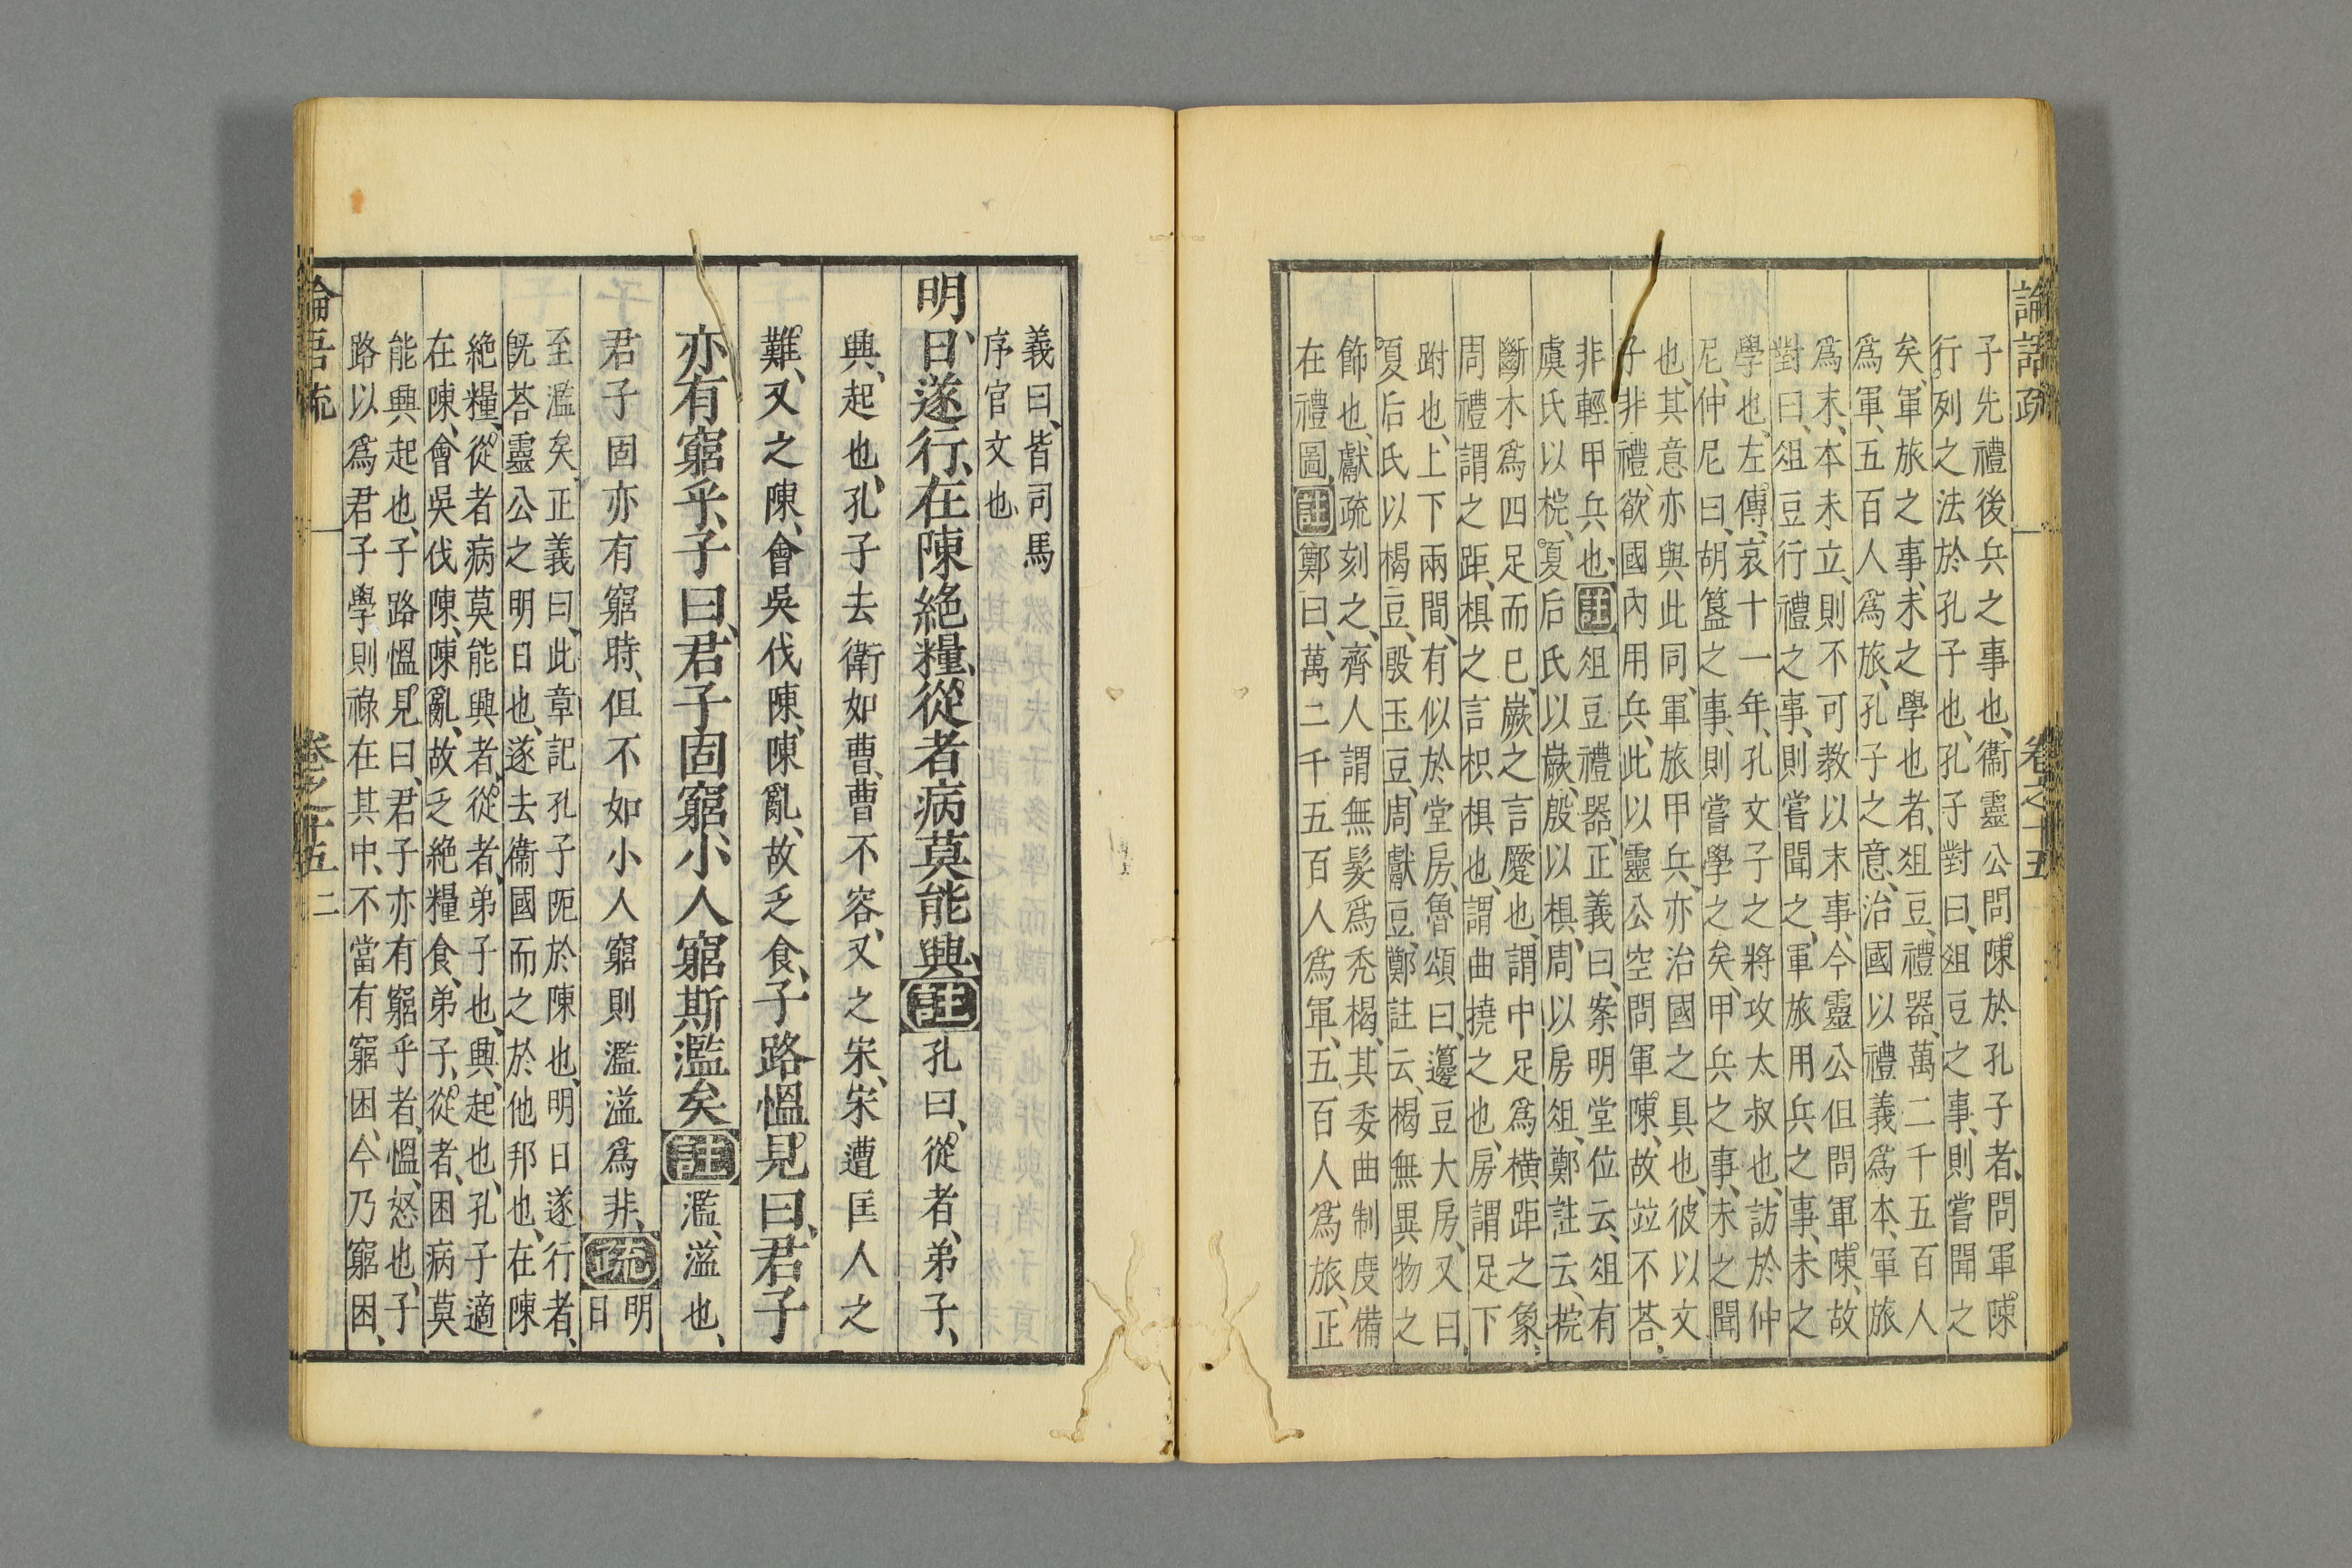 論語疏 卷之十五
子先禮後兵之事也、衞靈公問陳於孔子者、問軍陳
行列之法於孔子也、孔子對曰、俎豆之事、則嘗聞之
矣、軍旅之事、未之學也者、俎豆、禮器、萬二千五百人
爲軍、五百人爲旅、孔子之意、治國以禮義爲本、軍旅
爲末、本未立、則不可教以末事、今靈公但問軍陳、故
對曰、俎豆行禮之事、則嘗聞之、軍旅用兵之事、未之
學也、左傳、哀十一年、孔文子之將攻太叔也、訪於仲
尼、仲尼曰、胡簋之事、則嘗學之矣、甲兵之事、未之聞
也、其意亦與此同、軍旅甲兵、亦治國之具也、彼以文
子非禮、欲國內用兵、此以靈公空問軍陳、故竝不荅、
非輕甲兵也、註俎豆禮器、正義曰、案明堂位云、俎有
虞氏以梡、夏后氏以嶡、殷以椇、周以房俎、鄭註云、梡
斷木爲四足而已、嶡之言蹷也、謂中足爲橫距之象、
周禮謂之距、椇之言枳椇也、謂曲撓之也、房謂足下
跗也、上下兩間、有似於堂房、魯頌曰、籩豆大房、又曰、
夏后氏以楬豆、殷玉豆、周獻豆、鄭註云、楬無異物之
飾也、獻疏刻之、齊人謂無髮爲禿楬、其委曲制度備
在禮圖、註鄭曰、萬二千五百人爲軍、五百人爲旅、正
義曰、皆司馬
序官文也
明日、遂行、在陳絶糧、從者病莫能興、註孔曰、從者、弟子、
興、起也、孔子去衛如曹、曹不容、又之宋、宋遭匡人之
難、又之陳、會吳伐陳、陳亂、故乏食、子路慍見曰、君子
亦有窮乎、子曰、君子固窮、小人窮斯濫矣、註濫、溢也、
君子固亦有窮時、但不如小人窮則濫溢爲非、疏明日
至濫矣、正義曰、此章記孔子阨於陳也、明日遂行者、
旣荅靈公之明日也、遂去衞國而之於他邦也、在陳
絶糧、從者病莫能興者、從者、弟子也、興、起也、孔子適
在陳、會吳伐陳、陳亂、故乏絶糧食、弟子從者、困病莫
能興起也、子路慍見曰、君子亦有窮乎者、慍、怒也、子
路以爲君子學、則祿在其中、不當有窮困、今乃窮困、
論語疏 卷之十五 二